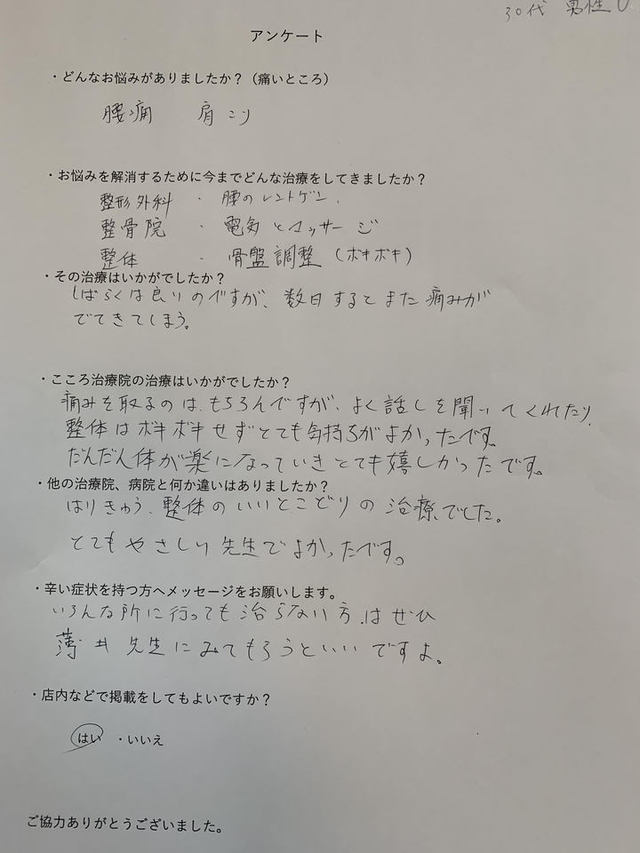 30代 男性 U
アンケート
・どんなお悩みがありましたか？（痛いところ）
腰痛 肩こり
・お悩みを解消するために今までどんな治療をしてきましたか？
整形外科 ・ 腰のレントゲン.
整骨院 ・ 電気とマッサージ
整体 ・ 骨盤調整（ボキボキ）
・その治療はいかがでしたか？
しばらくは良いのですが、数日するとまた痛みが
でてきてしまう。
・こころ治療院の治療はいかがでしたか？
痛みを取るのは、もちろんですが、よく話しを聞いてくれたり、
整体はボキボキせずとても気持ちがよかったです。
だんだん体が楽になっていきとても嬉しかったです。
・他の治療院、病院と何か違いはありましたか？
はりきゅう、整体のいいとこどりの治療でした。
とてもやさしい先生でよかったです。
・辛い症状を持つ方へメッセージをお願いします。
いろんな所に行っても治らない方は ぜひ
薄井先生にみてもろうといいですよ。
・店内などで掲載をしてもよいですか？
はい ・いいえ
ご協力ありがとうございました。